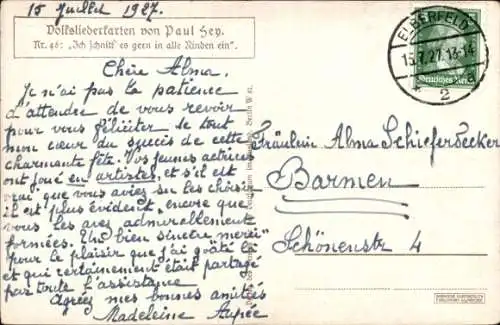 15 Juillet 1927.
Volksliederkarten von Paul Hey.
Nr. 46: „Ich schnitt' es gern in alle Rinden ein".
Chère Alma.
Je n'ai pas la patience
d'attendre de vous revoir
pour vous féliciter de tout
mon cœur du succès de cette
charmante fête. Vos jeunes actrices
ont joué en artistes, et s'il est
vrai que vous aviez su les choisir
il est plus évident, encore que
vous les avez admirablement
formées. Un bien sincère merci
pour le plaisir que j'ai goûté là
et qui certainement était partagé
par toute l'assistance
Agréez mes bonnes amitiés
Madeleine
ELBERFELD
15.7.27. 13-14
* 2
Deutsches Reich
Fräulein Alma Schieferdecker
Barmen
Schönenstr 4